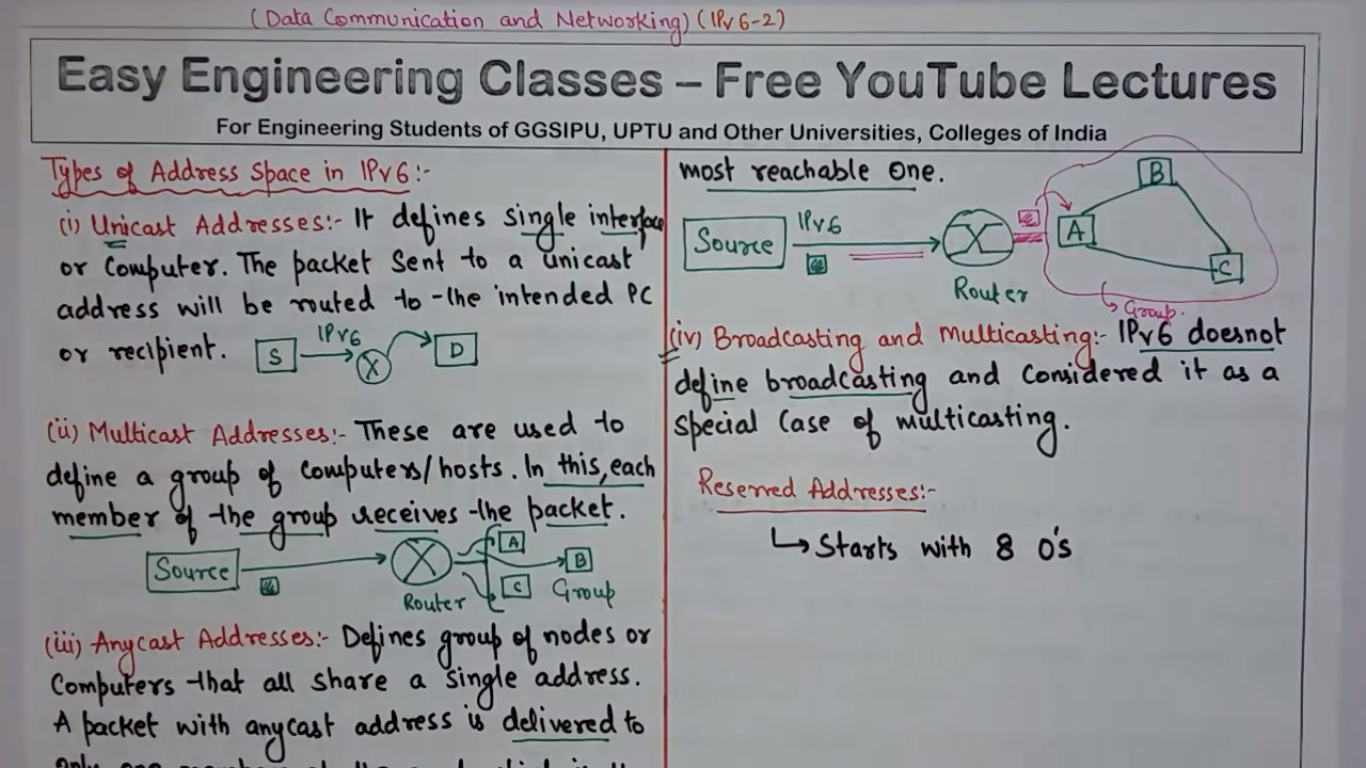 (Data Communication and Networking) (IPv6-2)
Easy Engineering Classes – Free YouTube Lectures
For Engineering Students of GGSIPU, UPTU and Other Universities, Colleges of India
Types of Address Space in IPv6:-
(i) Unicast Addresses:- It defines single interface
or Computer. The packet Sent to a unicast
address will be routed to the intended PC
or recipient.
IPv6
S
D
(ii) Multicast Addresses:- These are used to
define a group of Computers/hosts. In this, each
member of the group receives the packet.
Source
Router
A
B
C
Group
(iii) Anycast Addresses:- Defines group of nodes or
Computers that all share a single address.
A packet with anycast address is delivered to
most reachable one.
Source
IPv6
Router
A
B
C
Group.
(iv) Broadcasting and Multicasting:- IPv6 doesnot
define broadcasting and Considered it as a
special Case of multicasting.
Reserved Addresses:-
Starts with 8 0's